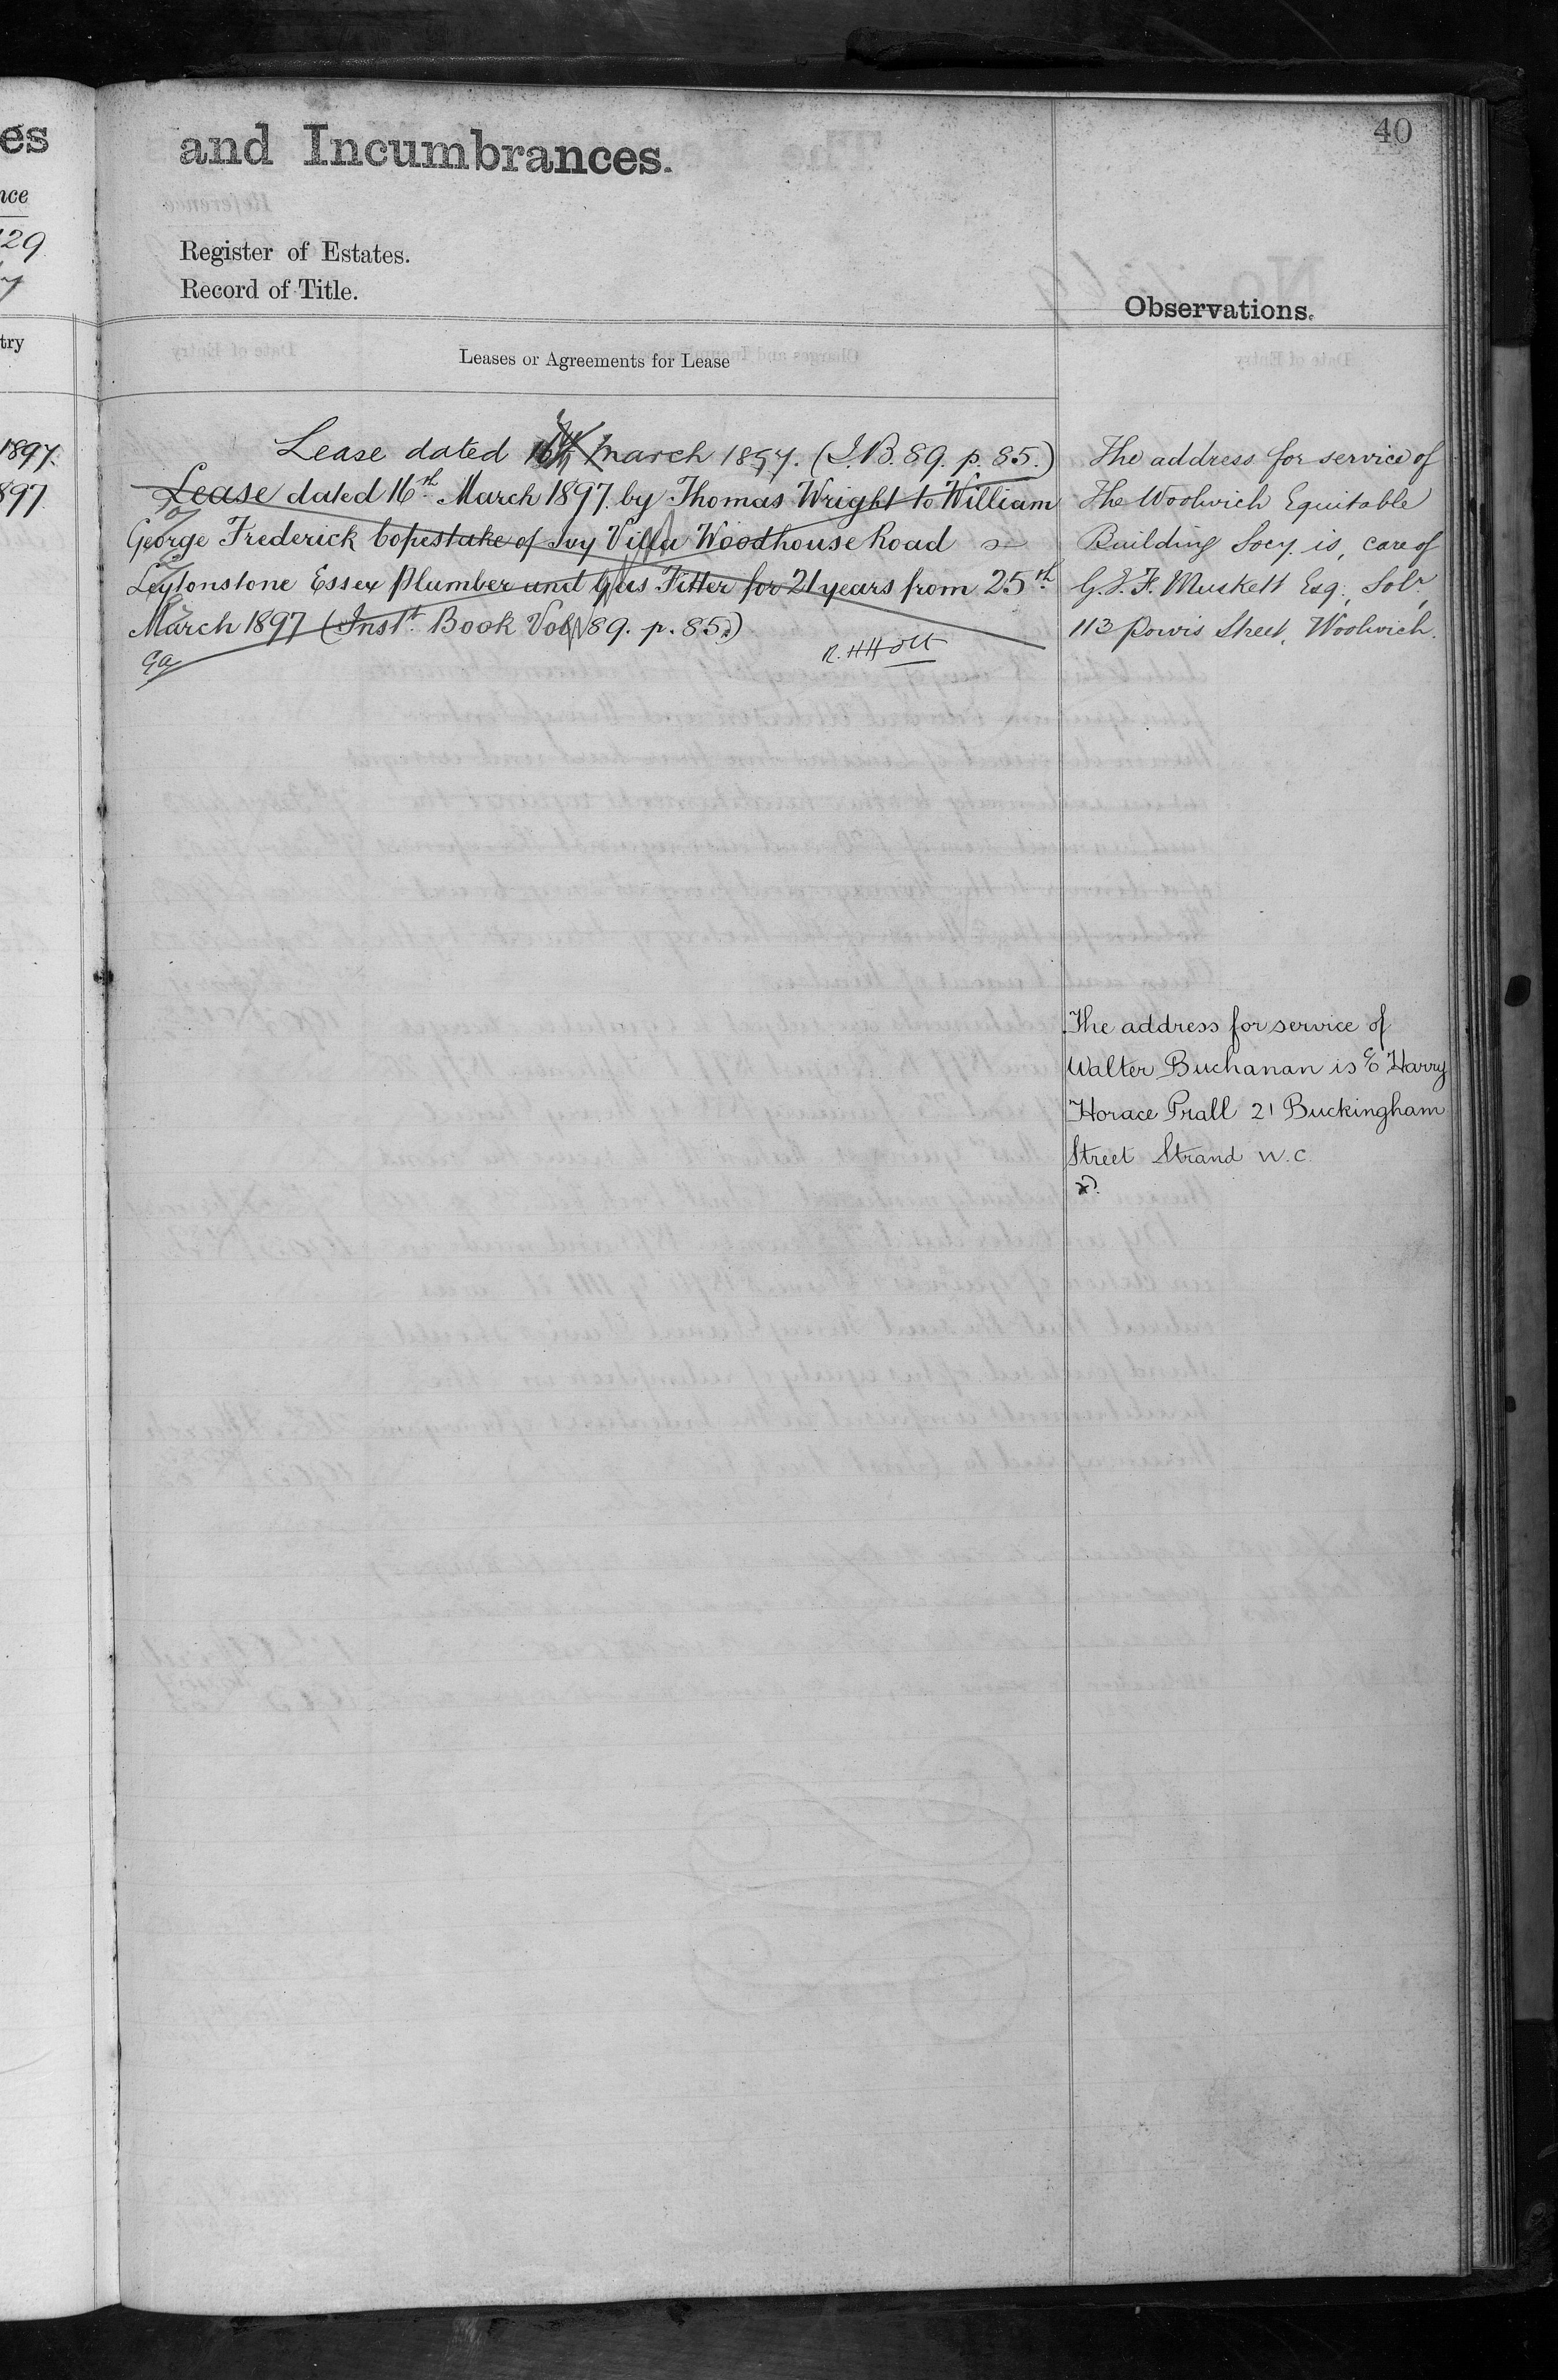 40
and Incumbrances.
Register of Estates.
Record of Title.
Observations.
Leases or Agreements for Lease
Lease dated 16th March 1897. (I.B. 89. p. 85.)
Lease dated 16th March 1897. by Thomas Wright to William
George Frederick Copestake of Ivy Villa Woodhouse Road
Leytonstone Essex Plumber and Gas Fitter for 21 years from 25th
March 1897 (Inst. Book Vol 89. p. 85.)
The address for service of
The Woolwich Equitable
Building Socy. is, care of
Muskett Esq., Solr,
113 Powis Street, Woolwich.
The address for service of
Walter Buchanan is Harry
Horace Prall 21 Buckingham
Street Strand W.C.
es
nce
29
try
1897.
897.